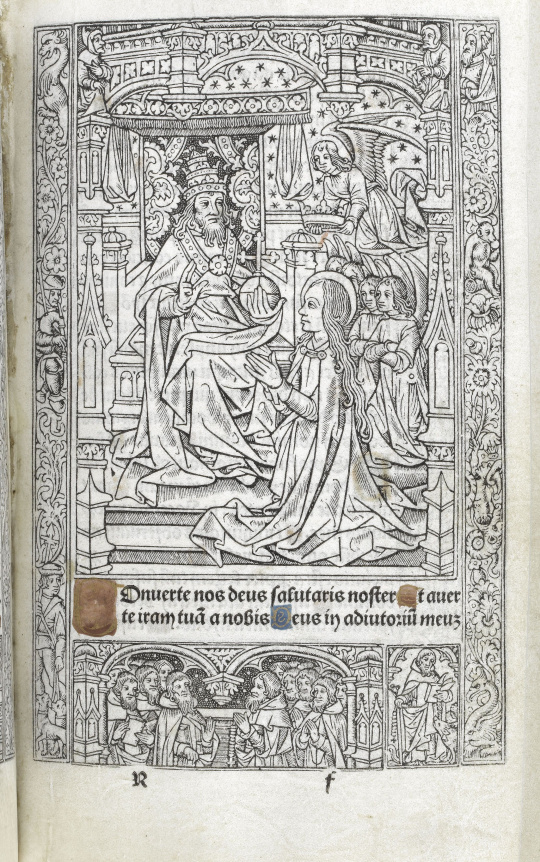 Onuerte nos deus salutaris noster Et auer
te iram tuã a nobis Deus in adiutoriũ meuz
R f